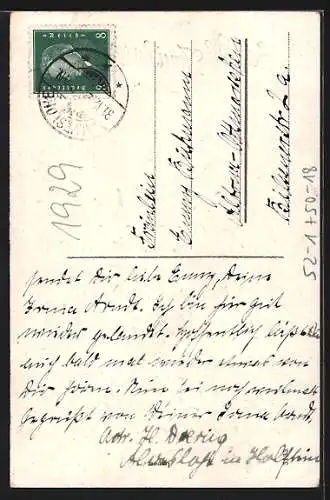 8 8
1929
Fräulein
Emmy
Altona-Ottensen
52-1+50-18
sendet Dir, liebe Emmy, Deine
Irma Arndt. Ich bin hier gut
wieder gelandet. Hoffentlich läßt Du
auch bald mal wieder etwas von
Dir hören. Nun sei noch vielmals
gegrüßt von Deiner Irma Arndt.
Adr. H. Doering
in Holstein